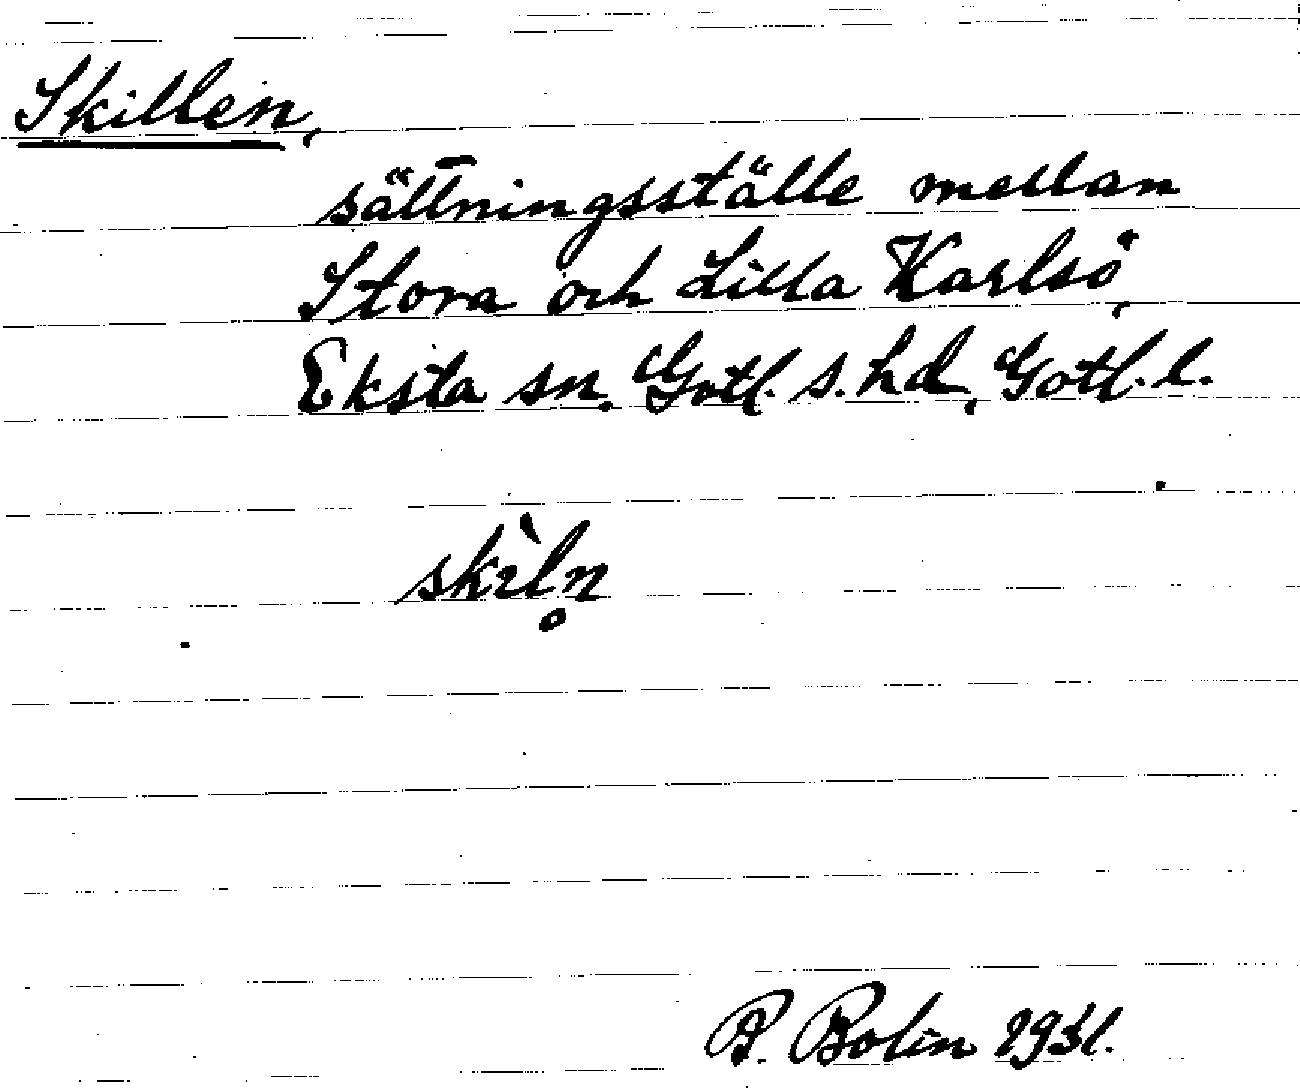 Skillen,
sättningsställe mellan
Stora och Lilla Karlsö,
Eksta sn. Gotl. s. hd, Gotl. l.
skìln̥
P. Bolin 1931.